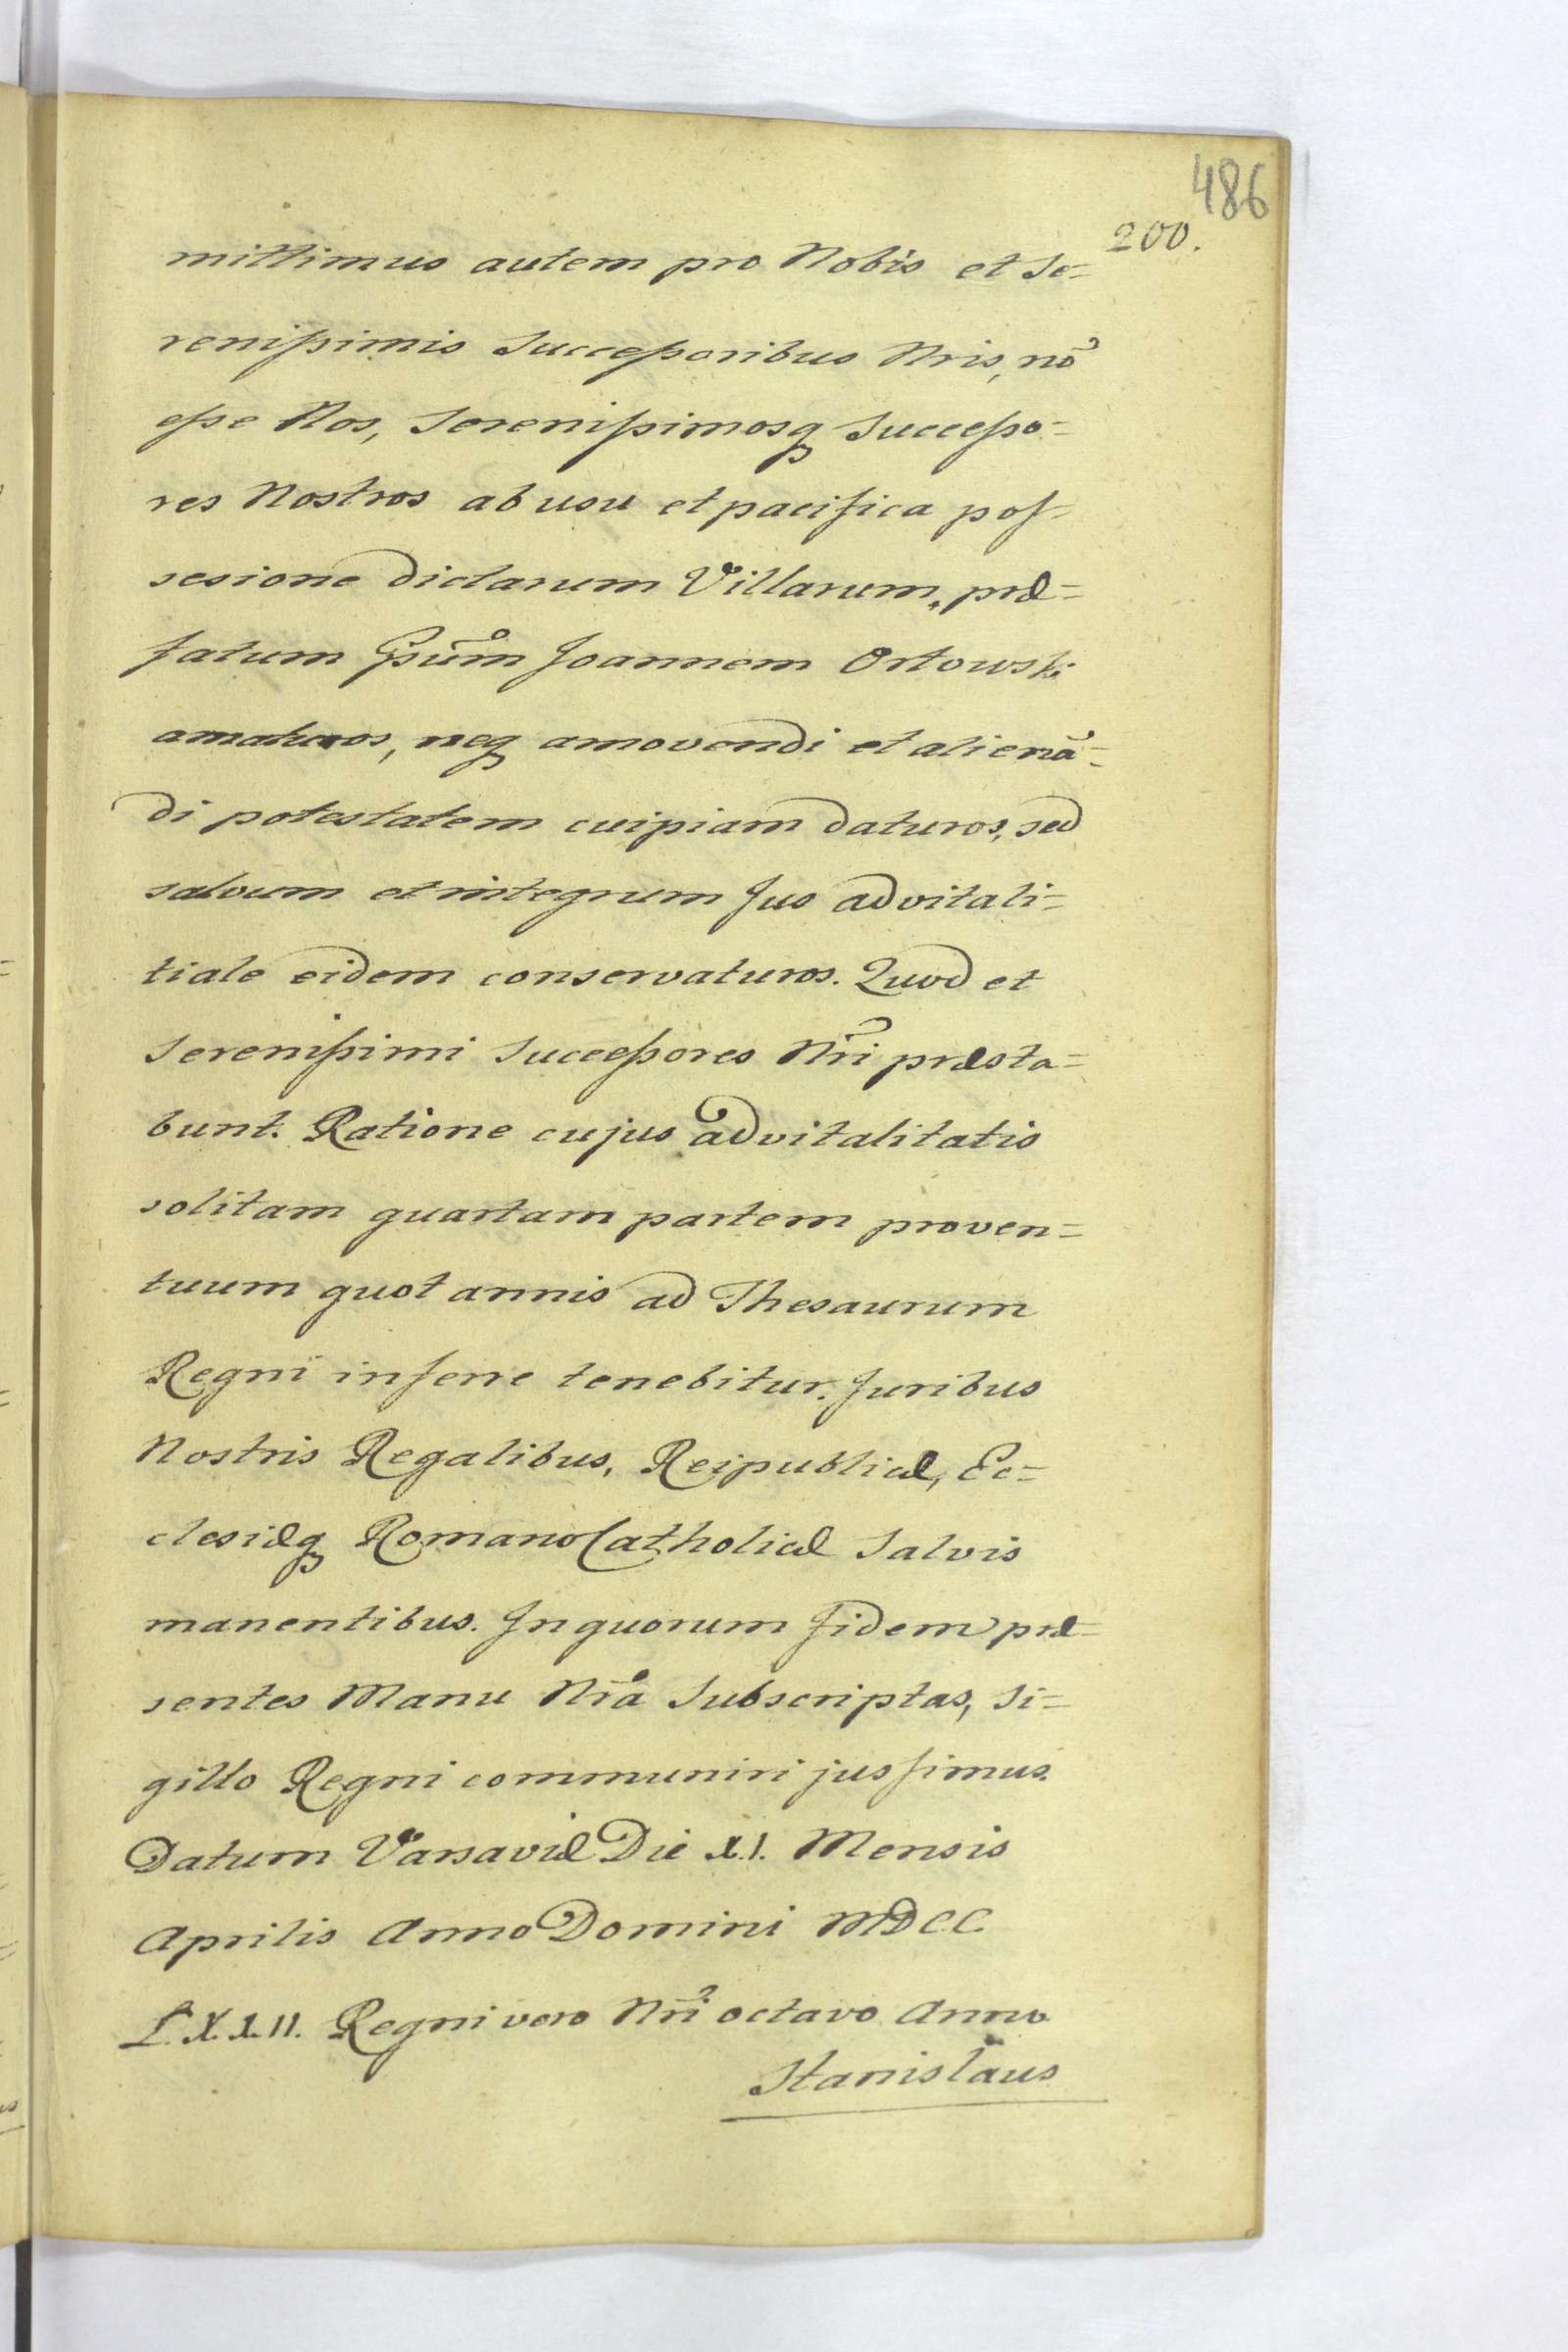 486
200.
mittimus autem pro Nobis et Se=
renißimis Succeßoribus Nris, nõ
eße Nos, Serenißimosq Succeßo=
res Nostros ab usu et pacifica pos=
sesione dictarum Villarum, præ=
fatum Gsum̃ Joannem Orłowski
amoturos, neq amovendi et alienã=
di potestatem cuipiam daturos, sed
salvum et integrum Jus advitali=
tiale eidem conservaturos. Quod et
Serenißimi Succeßores Nri præsta=
bunt. Ratione cujus advitalitatis
solitam quartam partem proven=
tuum quot annis ad Thesaurum
Regni inferre tenebitur. Juribus
Nostris Regalibus, Reipublicæ, Ec=
clesiæq Romano Catholicæ Salvis
manentibus. In quorum fidem præ=
sentes Manu Nra Subscriptas, Si=
gillo Regni communiri jussimus.
Datum Varsaviæ Die XI. Mensis
Aprilis Anno Domini MDCC.
LXXII. Regni vero Nri octavo Anno
Stanislaus